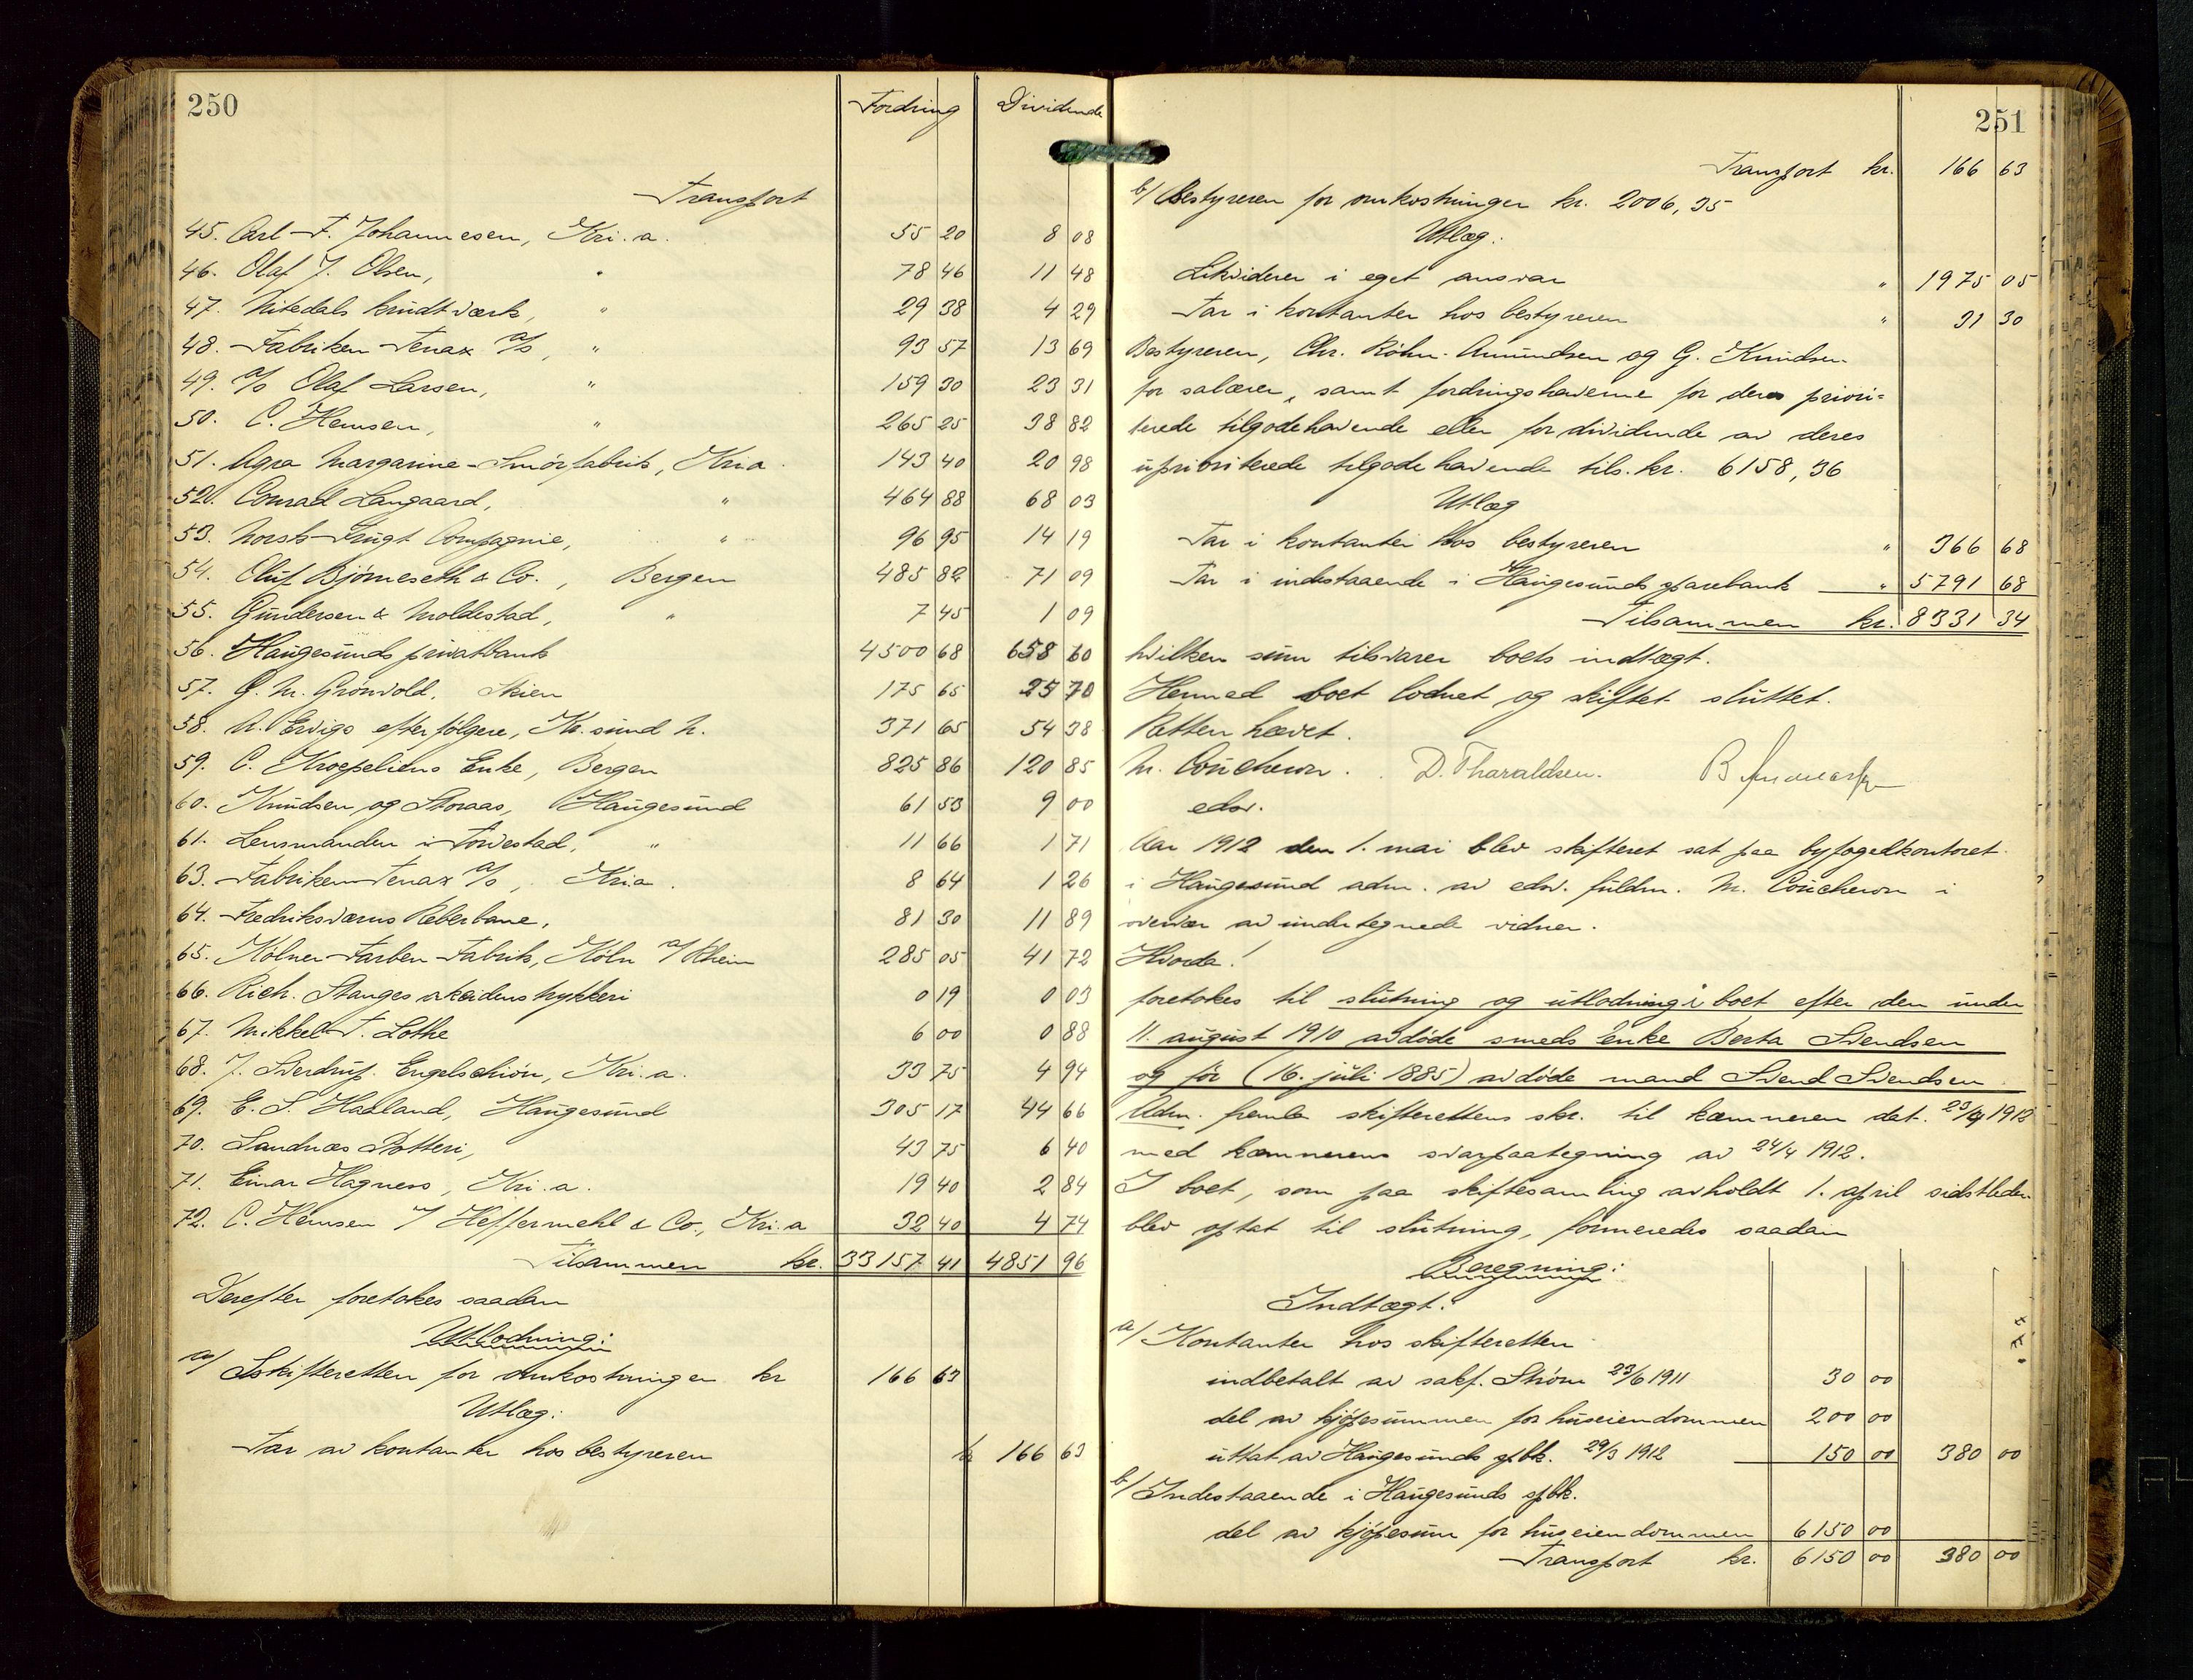 250
Fordring Dividende
Transport
45. Carl F. Johannesen, Kri.a. 55 20 8 08
46. Olaf J. Olsen, " 78 46 11 48
47. Nitedals krudtværk, " 29 38 4 29
48. Fabriken Tenax A/S, " 93 57 13 69
49. A/S Olaf Larsen, " 159 30 23 31
50. C. Hemsen, " 265 25 38 82
51. Agra Margarine-Smörfabrik, Kria. 143 40 20 98
52. Conrad Langaard, " 464 88 68 03
53. Norsk Frugt Compagnie, " 96 95 14 19
54. Oluf Bjørneseth & Co., Bergen 485 82 71 09
55. Gundersen & Moldestad, " 7 45 1 09
56. Haugesunds privatbank 4500 68 658 60
57. G. M. Grönvold, Skien 175 65 25 70
58. A. Ervigs efterfölgere, Kr.sund N. 371 65 54 38
59. C. Kroepeliens Enke, Bergen 825 86 120 85
60. Knudsen og Storaas, Haugesund 61 53 9 00
61. Lensmanden i Torvestad, " 11 66 1 71
63. Fabriken Tenax A/S, Kria. 8 64 1 26
64. Fredriksværns Reberbane, 81 30 11 89
65. Kölner Farben-Fabrik, Köln a/Rhein 285 05 41 72
66. Rich. Stanges akcidenstrykkeri 0 19 0 03
67. Mikkel T. Lothe 6 00 0 88
68. J. Sverdrup Engelschiön, Kri.a. 33 75 4 94
69. E. S. Haaland, Haugesund 305 17 44 66
70. Sandnæs Potteri, 43 75 6 40
71. Einar Hagness, Kri.a. 19 40 2 84
72. C. Hemsen / Heffermehl & Co., Kri.a 32 40 4 74
Tilsammen kr. 33157 41 4851 96
Derefter foretokes saadan
Utlodning:
a/ Skifteretten for omkostninger kr 166 63
Utlæg:
Tar av kontanter hos bestyreren kr 166 63
251
Transport kr. 166 63
b/ Bestyreren for omkostninger kr. 2006,35
Utlæg:
Likviderer i eget ansvar " 1975 05
Tar i kontanter hos bestyreren " 31 30
Bestyreren, Chr. Röhn-Amundsen og G. Knudsen
for salærer, samt fordringshaverne for deres priori-
terede tilgodehavende eller for dividende av deres
uprioriterede tilgodehavende tils. kr. 6158,36
Utlæg
Tar i kontanter hos bestyreren " 366 68
Tar i indestaaende i Haugesunds sparebank " 5791 68
Tilsammen kr. 8331 34
hvilken sum tilsvarer boets indtægt.
Hermed boet lodnet og skiftet sluttet.
Retten hævet.
M. Coucheron. D. Tharaldsen.
edsv.
Aar 1912 den 1. mai blev skifteret sat paa byfogedkontoret
i Haugesund adm. av edsv. fuldm. M. Coucheron i
overvær av undertegnede vidner.
Hvorda!
foretokes til slutning og utlodning i boet efter den under
11. august 1910 avdöde smeds enke Berta Svendsen
og för (16. juli 1885) avdöde mand Svend Svendsen.
Adm. fremla skifterettens skr. til kæmneren dat. 23/4 1912
med kæmnerens svarpaategning av 24/4 1912.
I boet, som paa skiftesamling avholdt 1. april sidstleden
blev optat til slutning, formeredes saadan
Beregning:
Indtægt:
a/ Kontanter hos skifteretten
indbetalt av sakf. Ström 23/6 1911 30 00
del av kjöpesummen for huseiendommen 200 00
uttat av Haugesunds spbk. 29/3 1912 150 00 380 00
b/ Indestaaende i Haugesunds spbk.
del av kjöpesum for huseiendommen 6150 00
Transport kr. 6150 00 380 00